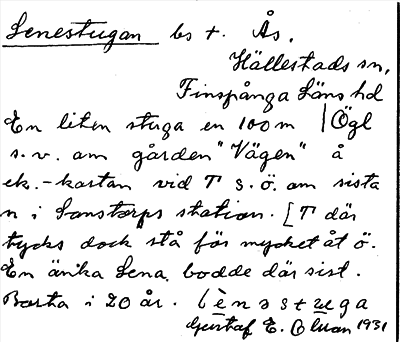 Lenestugan bs t. Ås.
Hällestads sn,
Finspånga Läns hd
En liten stuga en 100 m | Ögl
s.v. om gården "Vägen" å
ek.-kartan vid T s.ö. om sista
n i Sonstorps station. [T där
tycks dock stå för mycket åt ö.
En änka Lena bodde där sist.
Borta i 20 år. lènastuga
Gustaf E. 1931